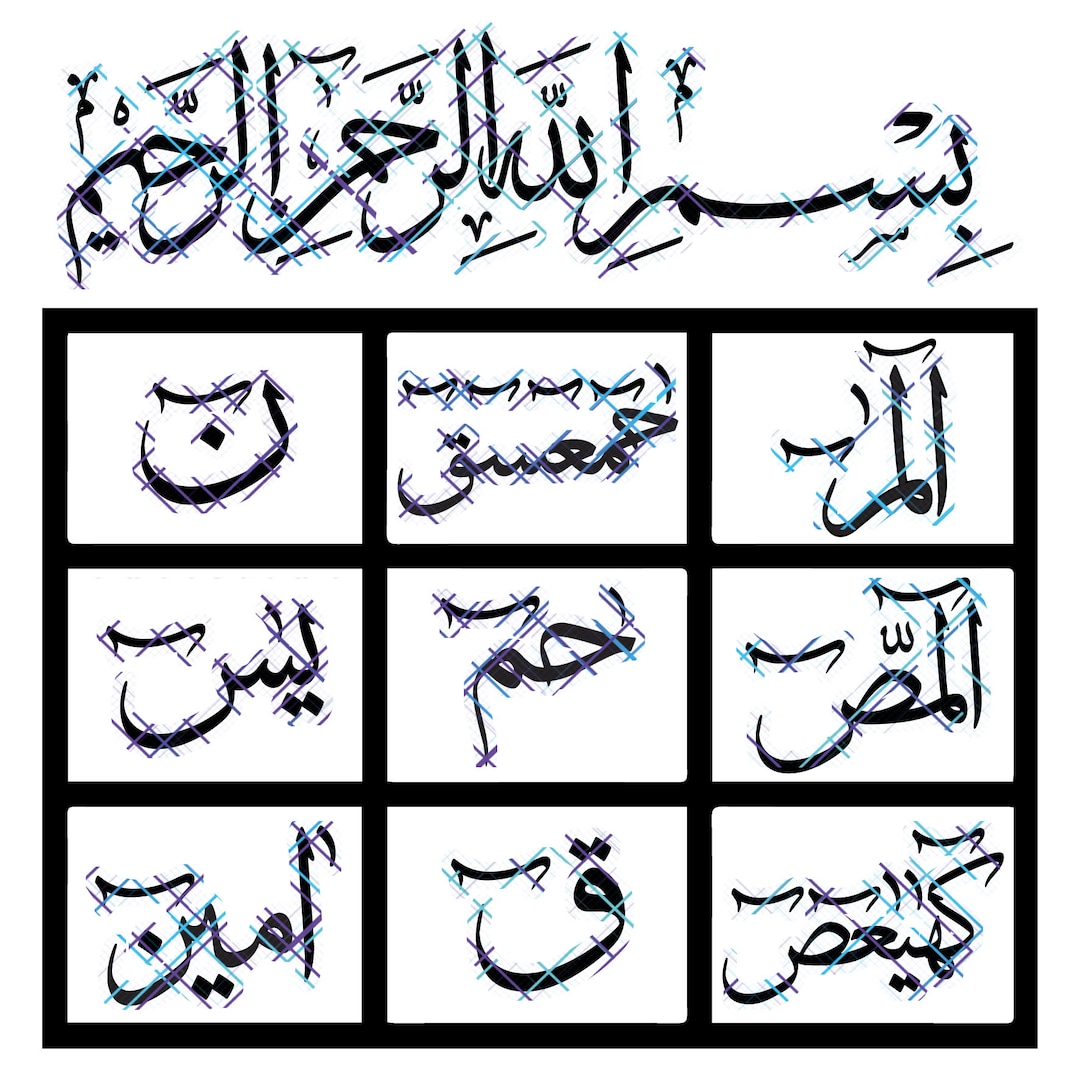 بِسْمِ اللّٰهِ الرَّحْمٰنِ الرَّحِيْمِ
الٓمٓرٰ
حٰمٓعٓسٓقٓ
نٓ
الٓمّٓصٓ
حٰمٓ
يٰسٓ
كٓهٰيٰعٓصٓ
قٓ
اٰميٓن